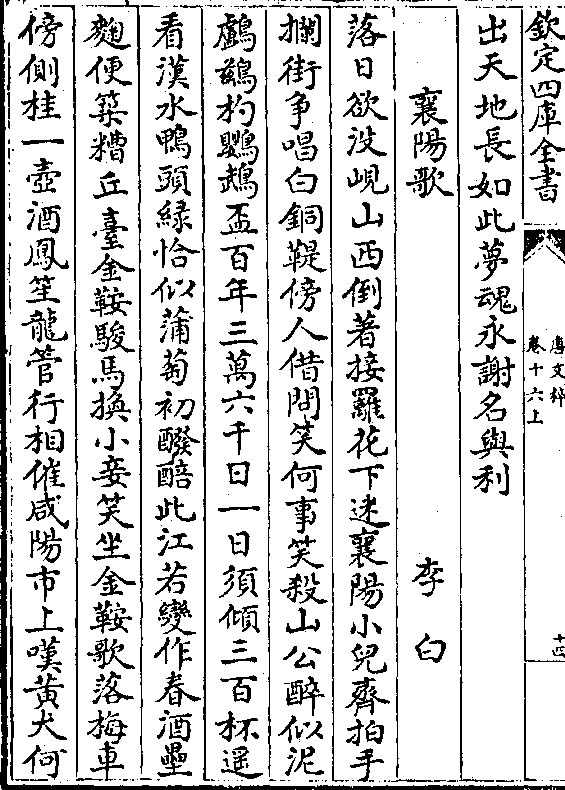 欽定四庫全書
唐文粹
卷十六上
十四
出天地長如此夢魂永謝名與利
襄陽歌
李白
落日欲沒峴山西倒著接䍦花下迷襄陽小兒齊拍手
攔街争唱白銅鞮傍人借問笑何事笑殺山公醉似泥
鸕鷀杓鸚鵡盃百年三萬六千日一日須傾三百杯遥
看漢水鴨頭緑恰似蒲萄初醱醅此江若變作春酒壘
麴便築糟丘臺金鞍駿馬換小妾笑坐金鞍歌落梅車
傍側桂一壺酒鳳笙龍管行相催咸陽市上嘆黄犬何